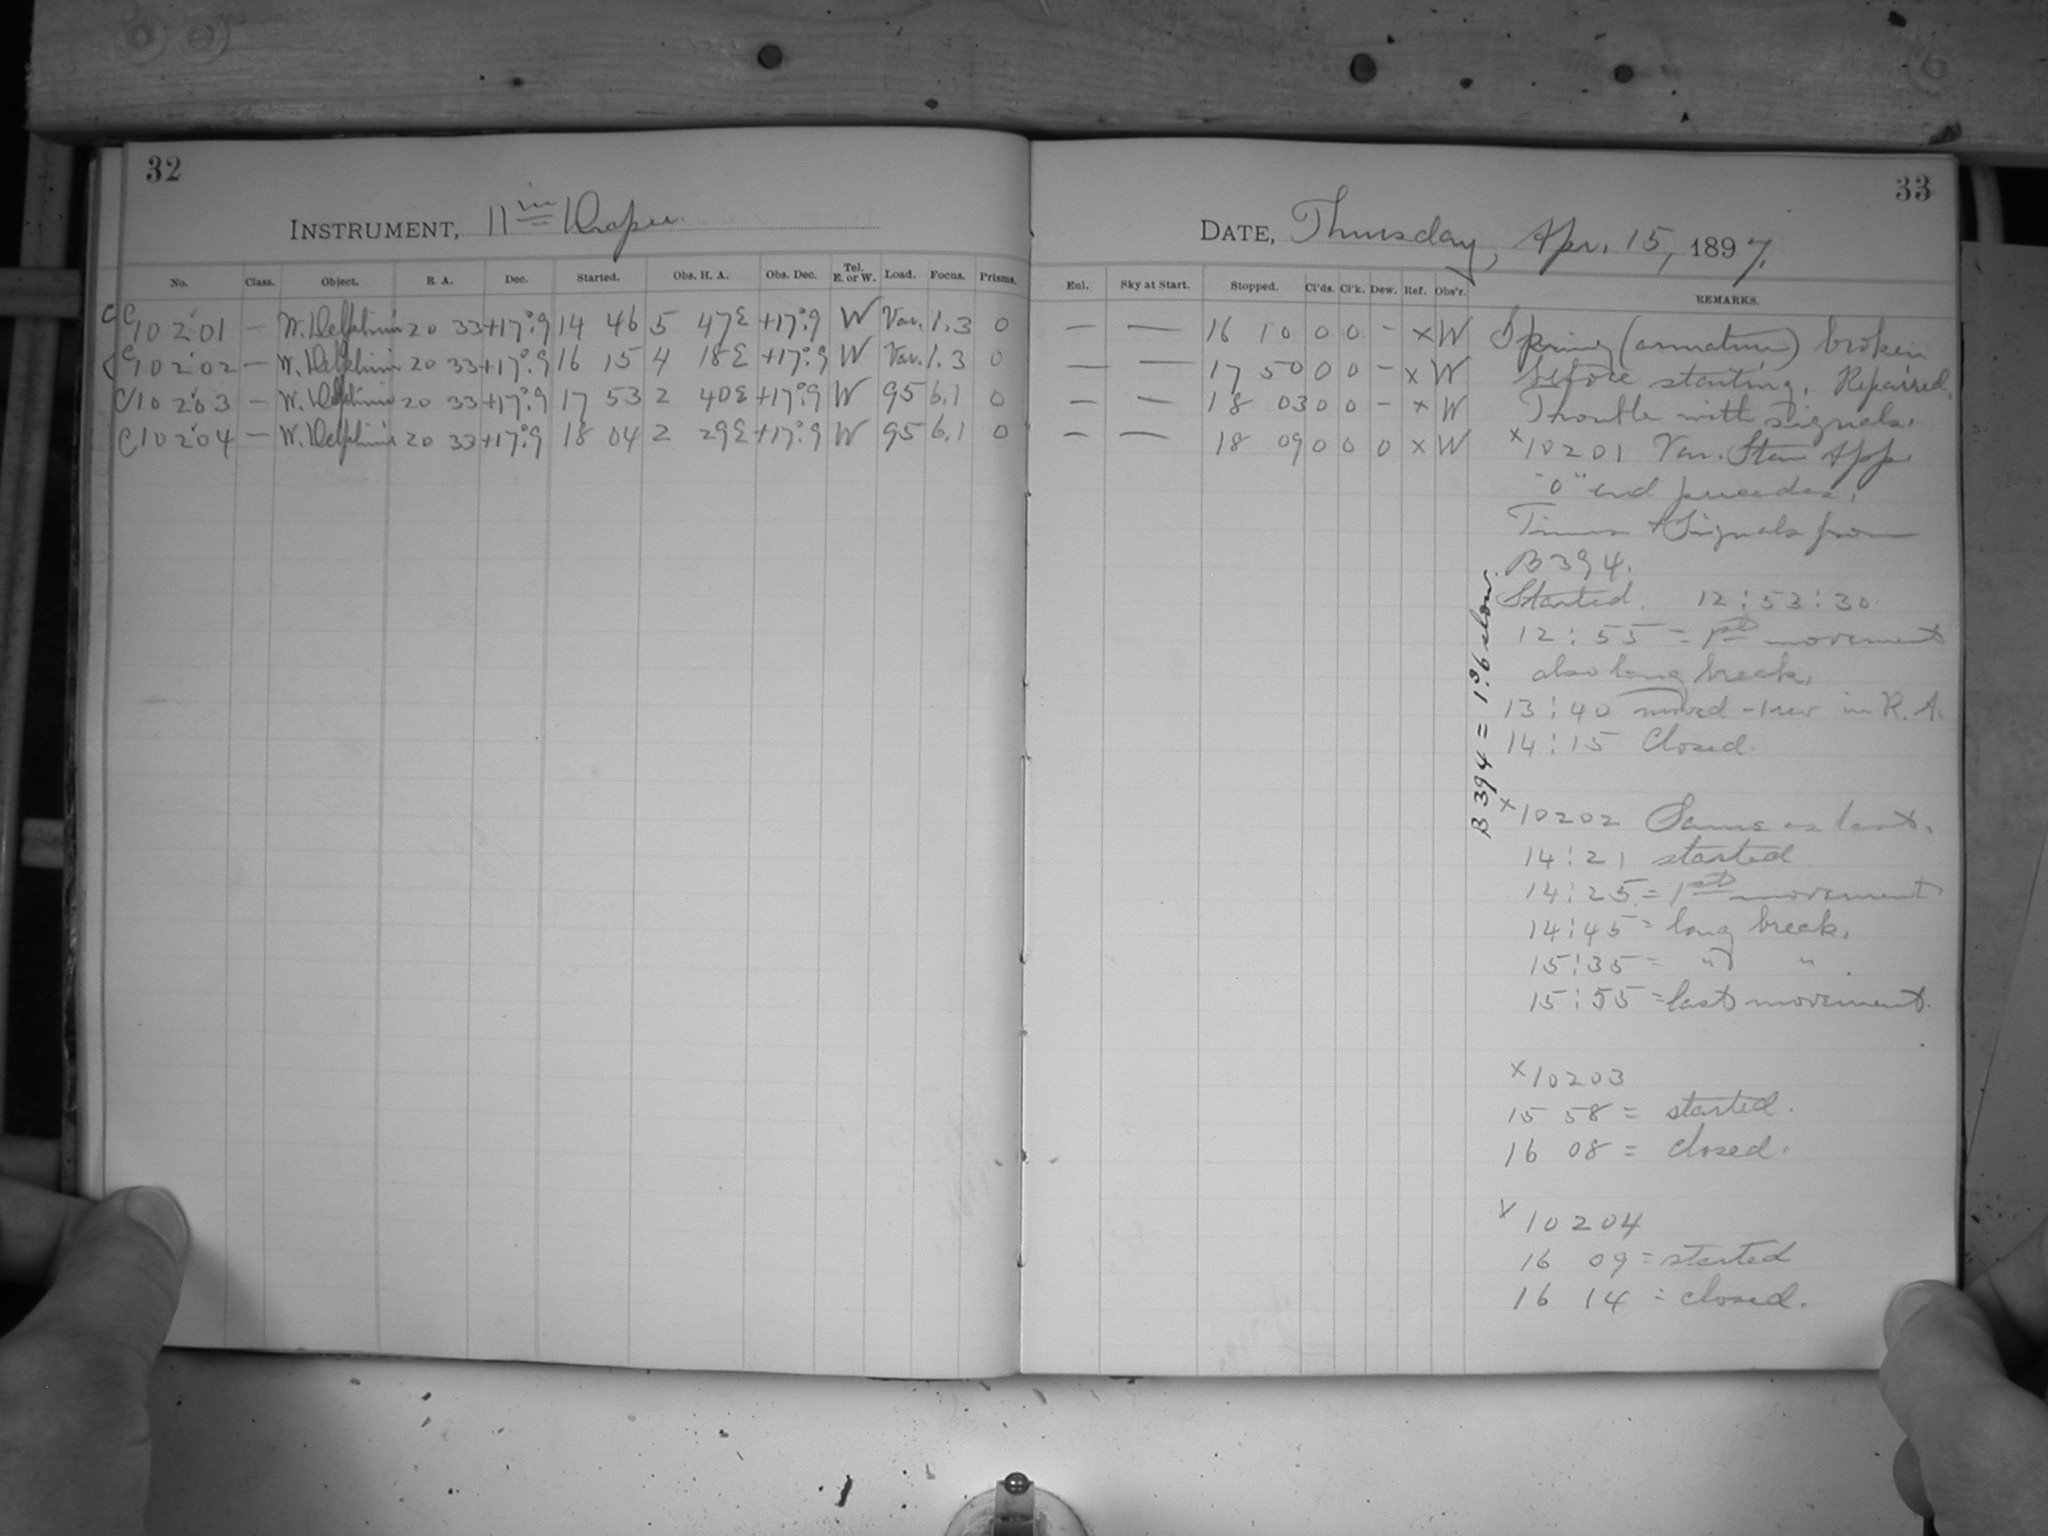 32
INSTRUMENT, 11in Draper.
No. Class. Object. R. A. Dec. Started. Obs. H. A. Obs. Dec. Tel. E. or W. Load. Focus. Prisms.
C 10201 — W. Delphini 20 33 +17°.9 14 46 5 47 E +17°.9 W Var. 1.3 0
C 10202 — W. Delphini 20 33 +17°.9 16 15 4 18 E +17°.9 W Var. 1.3 0
C 10203 — W. Delphini 20 33 +17°.9 17 53 2 40 E +17°.9 W 95 6.1 0
C 10204 — W. Delphini 20 33 +17°.9 18 04 2 29 E +17°.9 W 95 6.1 0
33
DATE, Thursday, Apr. 15, 1897.
Enl. Sky at Start. Stopped. Cl'ds. Cl'k. Dew. Ref. Obs'r. REMARKS.
— — 16 10 0 0 – x W
— — 17 50 0 0 – x W
— — 18 03 0 0 – x W
— — 18 09 0 0 0 x W
Spring (armature) broken
before starting. Repaired.
Trouble with signals.
x10201 Var. Star App.
"0" end precedes.
Times & Signals from
B394.
Started. 12:53:30
12:55 = 1st movement
also long break.
13:40 moved -1 rev in R. A.
14:15 Closed.
B 394 = 1s.6 slow.
x10202 Same as last.
14:21 started
14:25 = 1st movement
14:45 = long break.
15:35 = " " .
15:55 = last movement.
x10203
15 58 = started.
16 08 = closed.
x10204
16 09 = started
16 14 = closed.